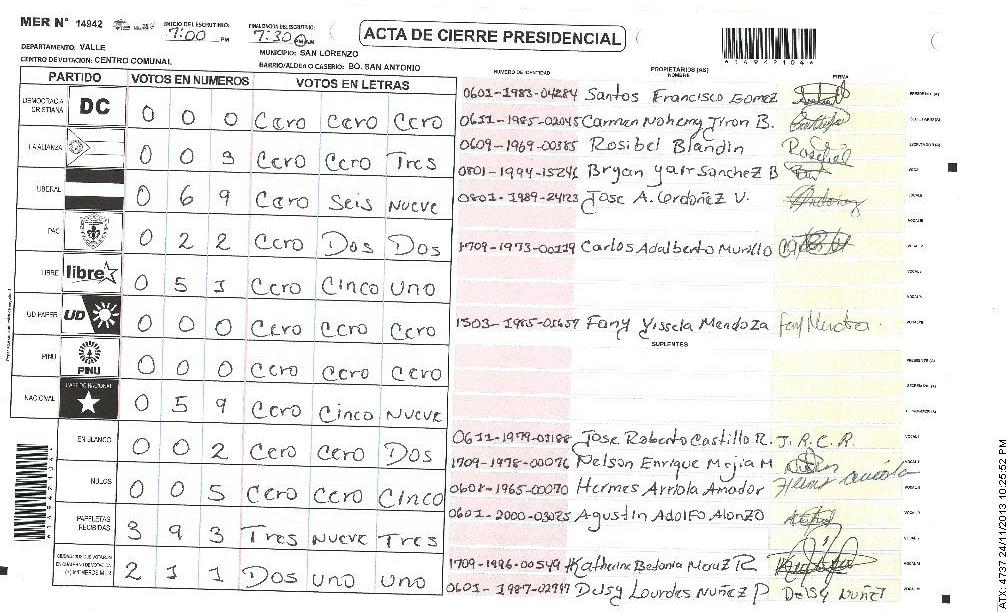 MER N° 14942
INICIO DEL ESCRUTINIO: 7:00 PM
FINALIZACION DEL ESCRUTINIO: 7:30 PM AM
ACTA DE CIERRE PRESIDENCIAL
DEPARTAMENTO: VALLE
MUNICIPIO: SAN LORENZO
CENTRO DE VOTACION: CENTRO COMUNAL
BARRIO/ALDEA O CASERIO: BO. SAN ANTONIO
149421046
PARTIDO VOTOS EN NUMEROS VOTOS EN LETRAS
DEMOCRACIA CRISTIANA DC 0 0 0 Cero Cero Cero
LA ALIANZA 0 0 3 Cero Cero Tres
LIBERAL 0 6 9 Cero Seis Nueve
PAC 0 2 2 Cero Dos Dos
LIBRE libre 0 5 1 Cero Cinco Uno
UD FAPER UD 0 0 0 Cero Cero Cero
PINU PINU 0 0 0 Cero Cero Cero
NACIONAL PARTIDO NACIONAL 0 5 9 Cero Cinco Nueve
EN BLANCO 0 0 2 Cero Cero Dos
NULOS 0 0 5 Cero Cero Cinco
PAPELETAS RECIBIDAS 3 9 3 Tres Nueve Tres
CIUDADANOS QUE VOTARON 2 1 1 Dos Uno Uno
NUMERO DE IDENTIDAD PROPIETARIOS (AS) NOMBRE FIRMA
0601-1983-04284 Santos Francisco Gomez PRESIDENTE (A)
0611-1985-02045 Carmen Nohemy B. SECRETARIO (A)
0609-1969-00385 Rosibel Blandin Rosibel ESCRUTADOR (A)
0801-1994-15241 Bryan Yair Sanchez B
0801-1989-24123 Jose A. Ordoñez V.
1709-1973-00119 Carlos Adalberto Murillo
1503-1985-01657 Fany Yissela Mendoza Fany Mendoza
SUPLENTES
PRESIDENTE (A)
SECRETARIO (A)
0611-1979-01188 Jose Roberto Castillo R. J. R. C. R.
1709-1978-00076 Nelson Enrique Mejia M
0608-1965-00070 Hermes Arriola Amador
0601-2000-03025 Agustin Adolfo Alonzo
1709-1996-00549 Katherine Betania R.
0601-1987-02997 Delsy Lourdes Nuñez P Delsy Nuñez
CATX 4737 24/11/2013 10:25:52 PM